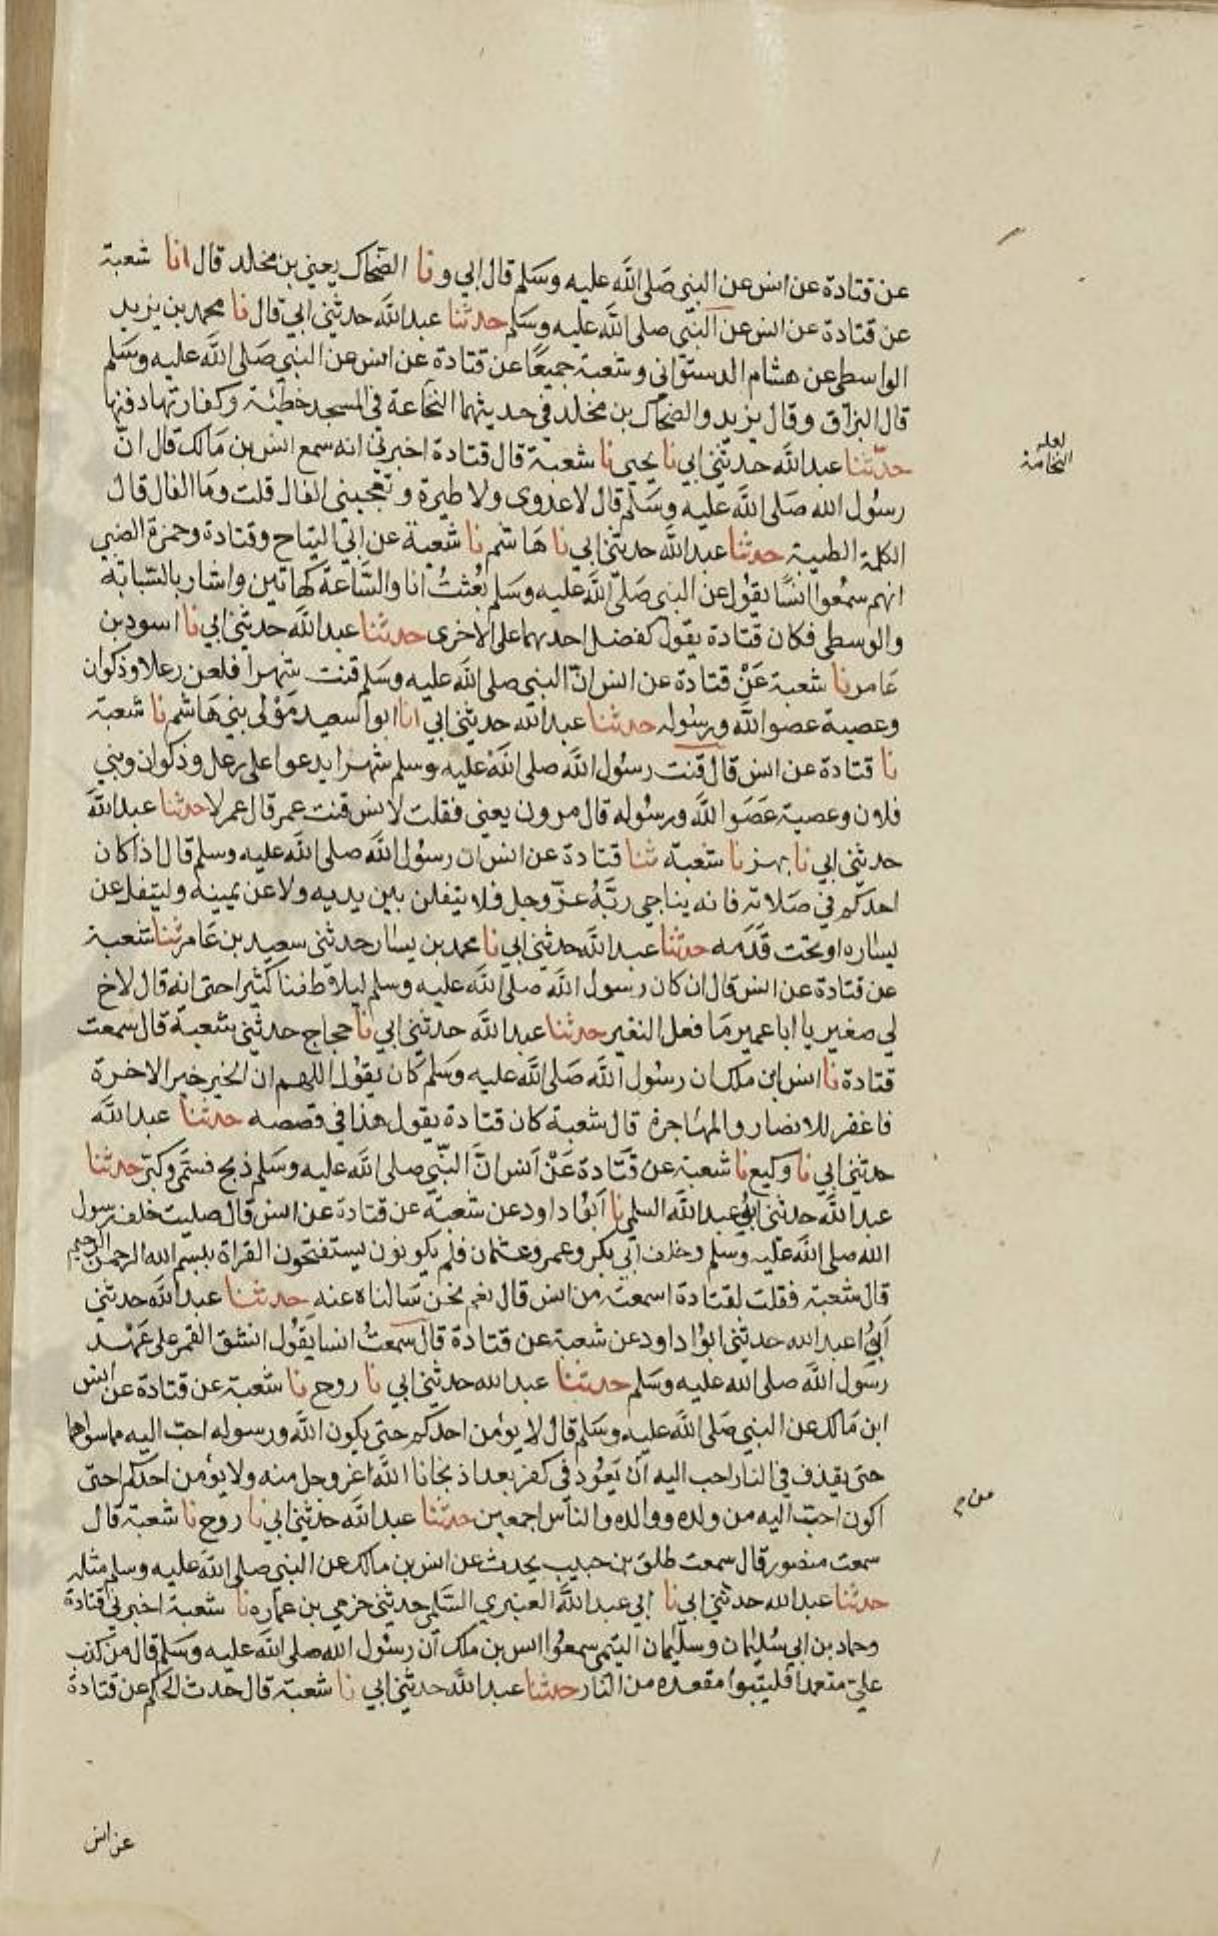 عن قتادة عن انس عن النبي صَلى اللَّه عليه وسَلم قال ابي ونا الضحاك يعني بن مخلد قال انا شعبة
عن قتادة عن انس عن النبي صلى اللَّه عليه وسَلم حدثنا عبد اللَّه حدثني ابي قال نا محمد بن يزيد
الواسطي عن هشام الدستواني وشعبة جميعًا عن قتادة عن انس عن النبي صَلى اللَّه عليه وسَلم
قال البزاق وقال يزيد والضحاك بن مخلد في حديثهما النخاعة في المسجد خطئة وكفارتها دفنها
حدثنا عبد اللَّه حدثني ابي نا يحيى نا شعبة قال قتادة اخبرني انه سمع انس بن مَالك قال انّ
لعله
النخامة
رسُول الله صَلى اللَّه عليه وسَلم قال لا عدوى ولا طيرة وتعجبني الفال قلت ومَا الفال قال
الكلمة الطيبة حدثنا عبد اللَّه حدثني ابي نا هَاشم نا شعبة عن ابي التياح وقتادة وحمزة الضبي
انهم سمعُوا انسًا يقول عن النبي صَلّى اللَّه عليه وسَلم بُعثتُ انا والسَّاعة كهاتين واشار بالسّبابة
والوسطى فكان قتادة يقول كفضل احدهما على الاخرى حدثنا عبد اللَّه حدثني ابي نا اسود بن
عَامر نا شعبة عَنْ قتادة عن انس انّ النبي صلى اللَّه عليه وسَلم قنت شهرا فلعن رعلا وذكوان
وعصية عصوا اللَّه ورسُوله حدثنا عبد الله حدثني ابي انا ابوا سعيد مَوْلى بني هَاشم نا شعبة
نا قتادة عن انس قال قنت رسول اللَّه صلى اللَّه عليه وسلم شهرا يدعوا على رعل وذكوان وبني
فلان وعصية عَصَوا للَّه ورسُوله قال مرون يعني فقلت لانس قنت عمر قال عمر لا حدثنا عبد اللَّه
حدثني ابي نا بهز نا شعبة ثنا قتادة عن انس ان رسول اللَّه صلى اللَّه عليه وسلم قال اذا كان
احدكم في صَلاته فانه يناجي ربَّهُ عزّ وجل فلا يتفلن بين يديه ولا عن يمينه وليتفل عن
يساره او تحت قَدَمه حدثنا عبد اللَّه حدثني ابي نا محمد بن يسار حدثني سعيد بن عَامر ثنا شعبة
عن قتادة عن انس قال ان كان رسول اللَّه صلى اللَّه عليه وسلم ليلاوطفنا كثيرا حتى انه قال لاخ
لي صغير يا ابا عمير مَا فعل النغير حدثنا عبد اللَّه حدثني ابي نا حجاج حدثني شعبة قال سمعت
قتادة نا انس ابن ملك ان رسُول اللَّه صَلى اللَّه عليه وسَلم كان يقوُل اللهم ان الخير خير الاخرة
فاغفر للانصار والمهاجرة قال شعبة كان قتادة يقول هذا في قصصه حدثنا عبد اللَّه
حدثني ابي نا وكيع نا شعبة عن قَتَادة عَنْ اَنس انّ النبّي صلى اللَّه عليه وسَلم ذبح فسمى وكبّر حدثنا
عبد اللَّه حدثني ابو عبد اللَّه السلمي نا اَبوُا داود عن شعبة عن قتادة عن انس قال صليت خلف رسول
الله صلى اللَّه عليه وسلم وخلف ابي بكر وعمر وعثمان فلم يكونون يستفتحون القراة ببسم الله الرحمن الرحيم
قال شعبة فقلت لقتادة اسمعته من انس قال نعم نحن سَالناه عنه حدثنا عبد اللَّه حدثني
اَبوُا عبد الله حدثني ابوُا داود عن شعبة عن قتادة قال سمعتُ انسا يَقُول انشق القمر على عَهْد
رسُول اللَّه صلى الله عليه وسَلم حدثنا عبد الله حدثني ابي نا روح نا شعبة عن قتادة عن انس
ابن مَالك عن النبي صَلى اللَّه عليه وسَلم قال لا يؤمن احدكم حتى يكون اللَّه ورسوله احبّ اليه ماسواهما
حتى يقذف في النار احب اليه اَن يَعُود في كفر بعد اذ نجانا اللَّه عز وجل منه ولا يؤمن احدكم حتى
اكون احبّ اليه من ولده ووالده والناس اجمعين حدثنا عبد اللَّه حدثني ابي نا روح نا شعبة قال
سمعت منصور قال سمعت طلق بن حبيب يحدث عن انس بن مالك عن النبي صلى اللَّه عليه وسلم مثله
حدثنا عبد الله حدثني ابي نا ابي عبد اللَّه العنبري السَّلمي حدثني حرمي بن عمَاره نا شعبة اخبرني قتادة
وحماد بن ابي سُليمان وسليمان التيمي سمعوا انس بن ملك اَن رسُول الله صلى اللَّه عليه وسَلم قال من كذب
عليّ متعمدا فليتبوا مقعده من النار حدثنا عبد اللَّه حدثني ابي نا شعبة قال حدث الحكم عن قتادة
عن انس